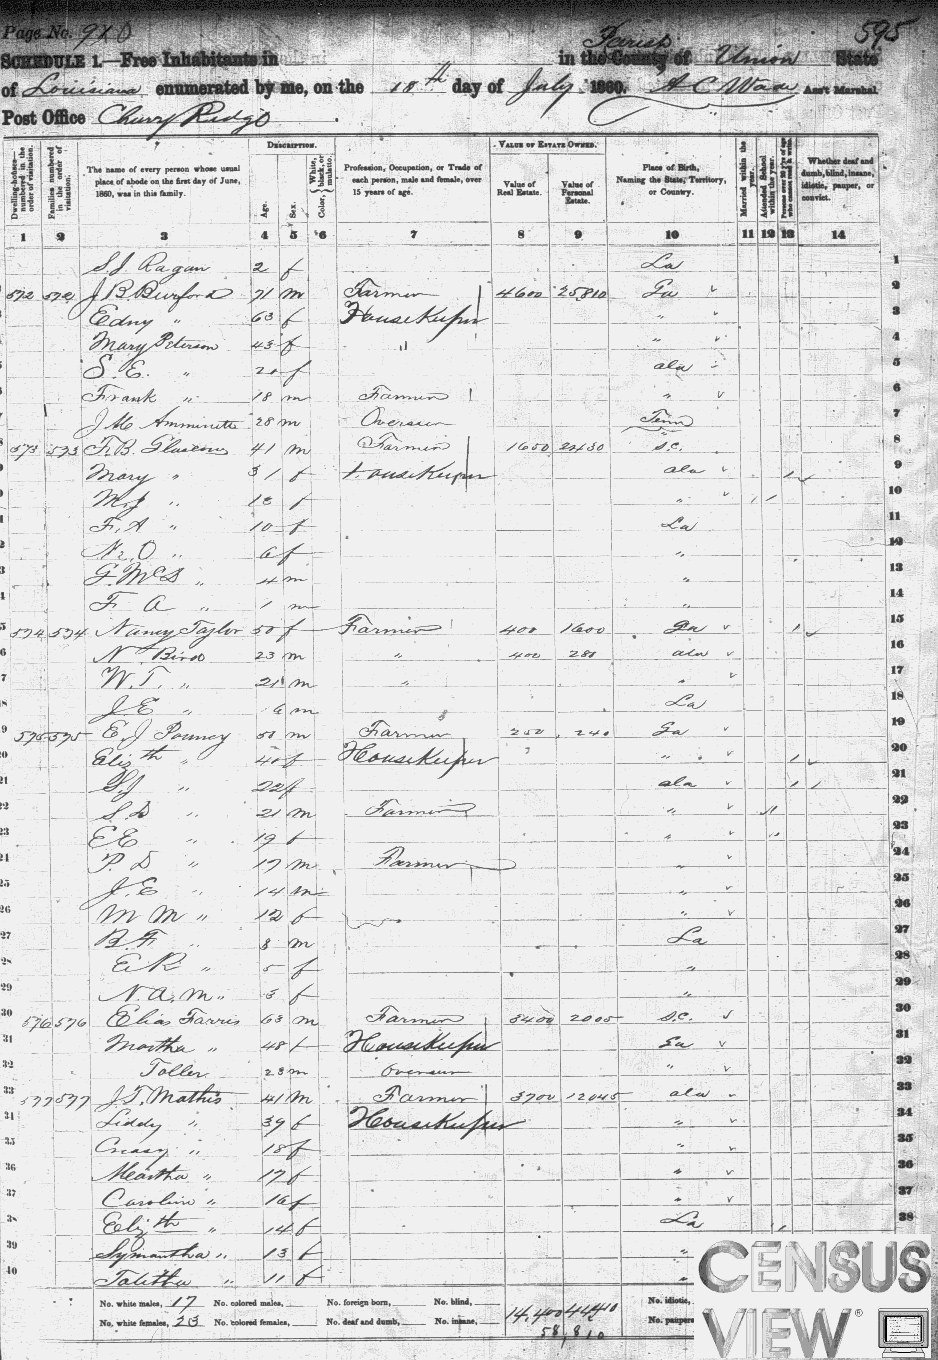 Page No. 90
595
SCHEDULE 1.—Free Inhabitants in in the County of Parish Union State
of Louisiana enumerated by me, on the 18th day of July 1860. A C Wade Ass't Marshal.
Post Office Cherry Ridge
Dwelling-houses—numbered in the order of visitation.
Families numbered in the order of visitation.
The name of every person whose usual place of abode on the first day of June, 1860, was in this family.
DESCRIPTION.
Age.
Sex.
Color, White, black, or mulatto.
Profession, Occupation, or Trade of each person, male and female, over 15 years of age.
VALUE OF ESTATE OWNED.
Value of Real Estate.
Value of Personal Estate.
Place of Birth, Naming the State, Territory, or Country.
Married within the year.
Attended School within the year.
Persons over 20 y'rs of age who cannot read & write.
Whether deaf and dumb, blind, insane, idiotic, pauper, or convict.
1 2 3 4 5 6 7 8 9 10 11 12 13 14
S. J. Ragan 2 f La 1
572 572 J B Burford 71 m Farmer 4600 25,810 Ga 2
Edny " 63 f HouseKeeper " 3
Mary Peterson 43 f " " 4
S. E. " 20 f ala 5
Frank " 18 m Farmer " 6
J M Amminette 28 m Overseer Tenn 7
573 573 F. B. 41 m Farmer 1650 22430 S.C. 8
Mary " 31 f HouseKeeper ala 9
M. J " 13 f " 10
F. A " 10 f La 11
N. O " 6 f " 12
G. McD " 4 m " 13
F A " 1 m " 14
574 574 Nancy Taylor 50 f Farmer 400 1600 Ga 15
N. Bird 23 m " 400 280 ala 16
W. T. " 21 m " " 17
J E " 6 m La 18
575 575 E J Pouncy 50 m Farmer 250 240 Ga 19
Elizth " 40 f HouseKeeper " 20
S. J " 22 f ala 21
S D " 21 m Farmer " 22
E E " 19 f " 23
P. D " 17 m Farmer " 24
J. E " 14 m " 25
M M " 12 f " 26
B. F " 8 m La 27
E R " 5 f " 28
N. A. M " 3 f " 29
576 576 Elias Farris 63 m Farmer 3400 2005 S.C. 30
Martha " 48 f HouseKeeper Ga 31
Toller 23 m overseer " 32
577 577 J. T. Mathis 41 m Farmer 3700 12045 ala 33
Liddy " 39 f HouseKeeper " 34
Creasy " 18 f " 35
Meartha " 17 f " 36
Caroline " 16 f " 37
Elizth " 14 f La 38
39 Symantha " 13 f "
40 Talitha " 11 f "
No. white males, 17 No. colored males, No. foreign born, No. blind, No. idiotic,
No. white females, 23 No. colored females, No. deaf and dumb, No. insane, No. paupers
14,400 44410
58,810
CENSUS
VIEW®